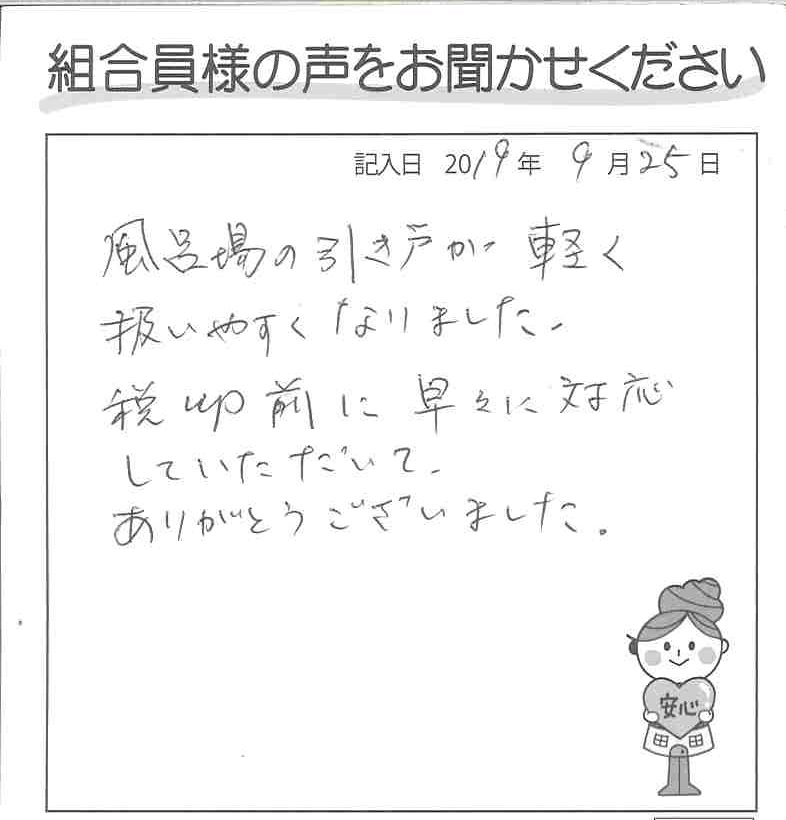 組合員様の声をお聞かせください
記入日 2019年 9月25日
風呂場の引き戸が軽く
扱いやすくなりました、
税up前に早々に対応
していただいて、
ありがとうございました。
安心